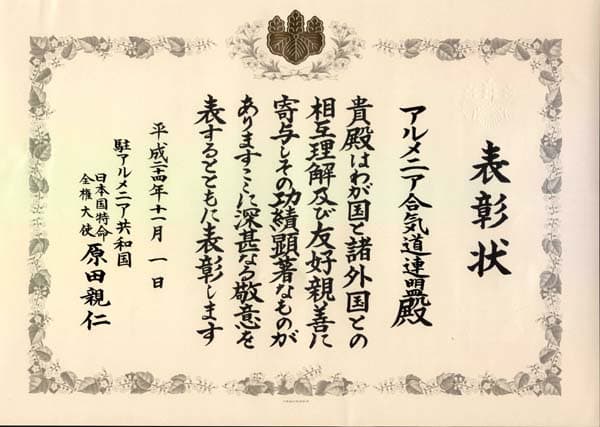 表彰状
アルメニア合気道連盟殿
貴殿はわが国と諸外国との
相互理解及び友好親善に
寄与しその功績顕著なものが
ありますここに深甚なる敬意を
表するとともに表彰します
平成二十四年十一月一日
駐アルメニア共和国
日本国特命
全権大使
原田親仁